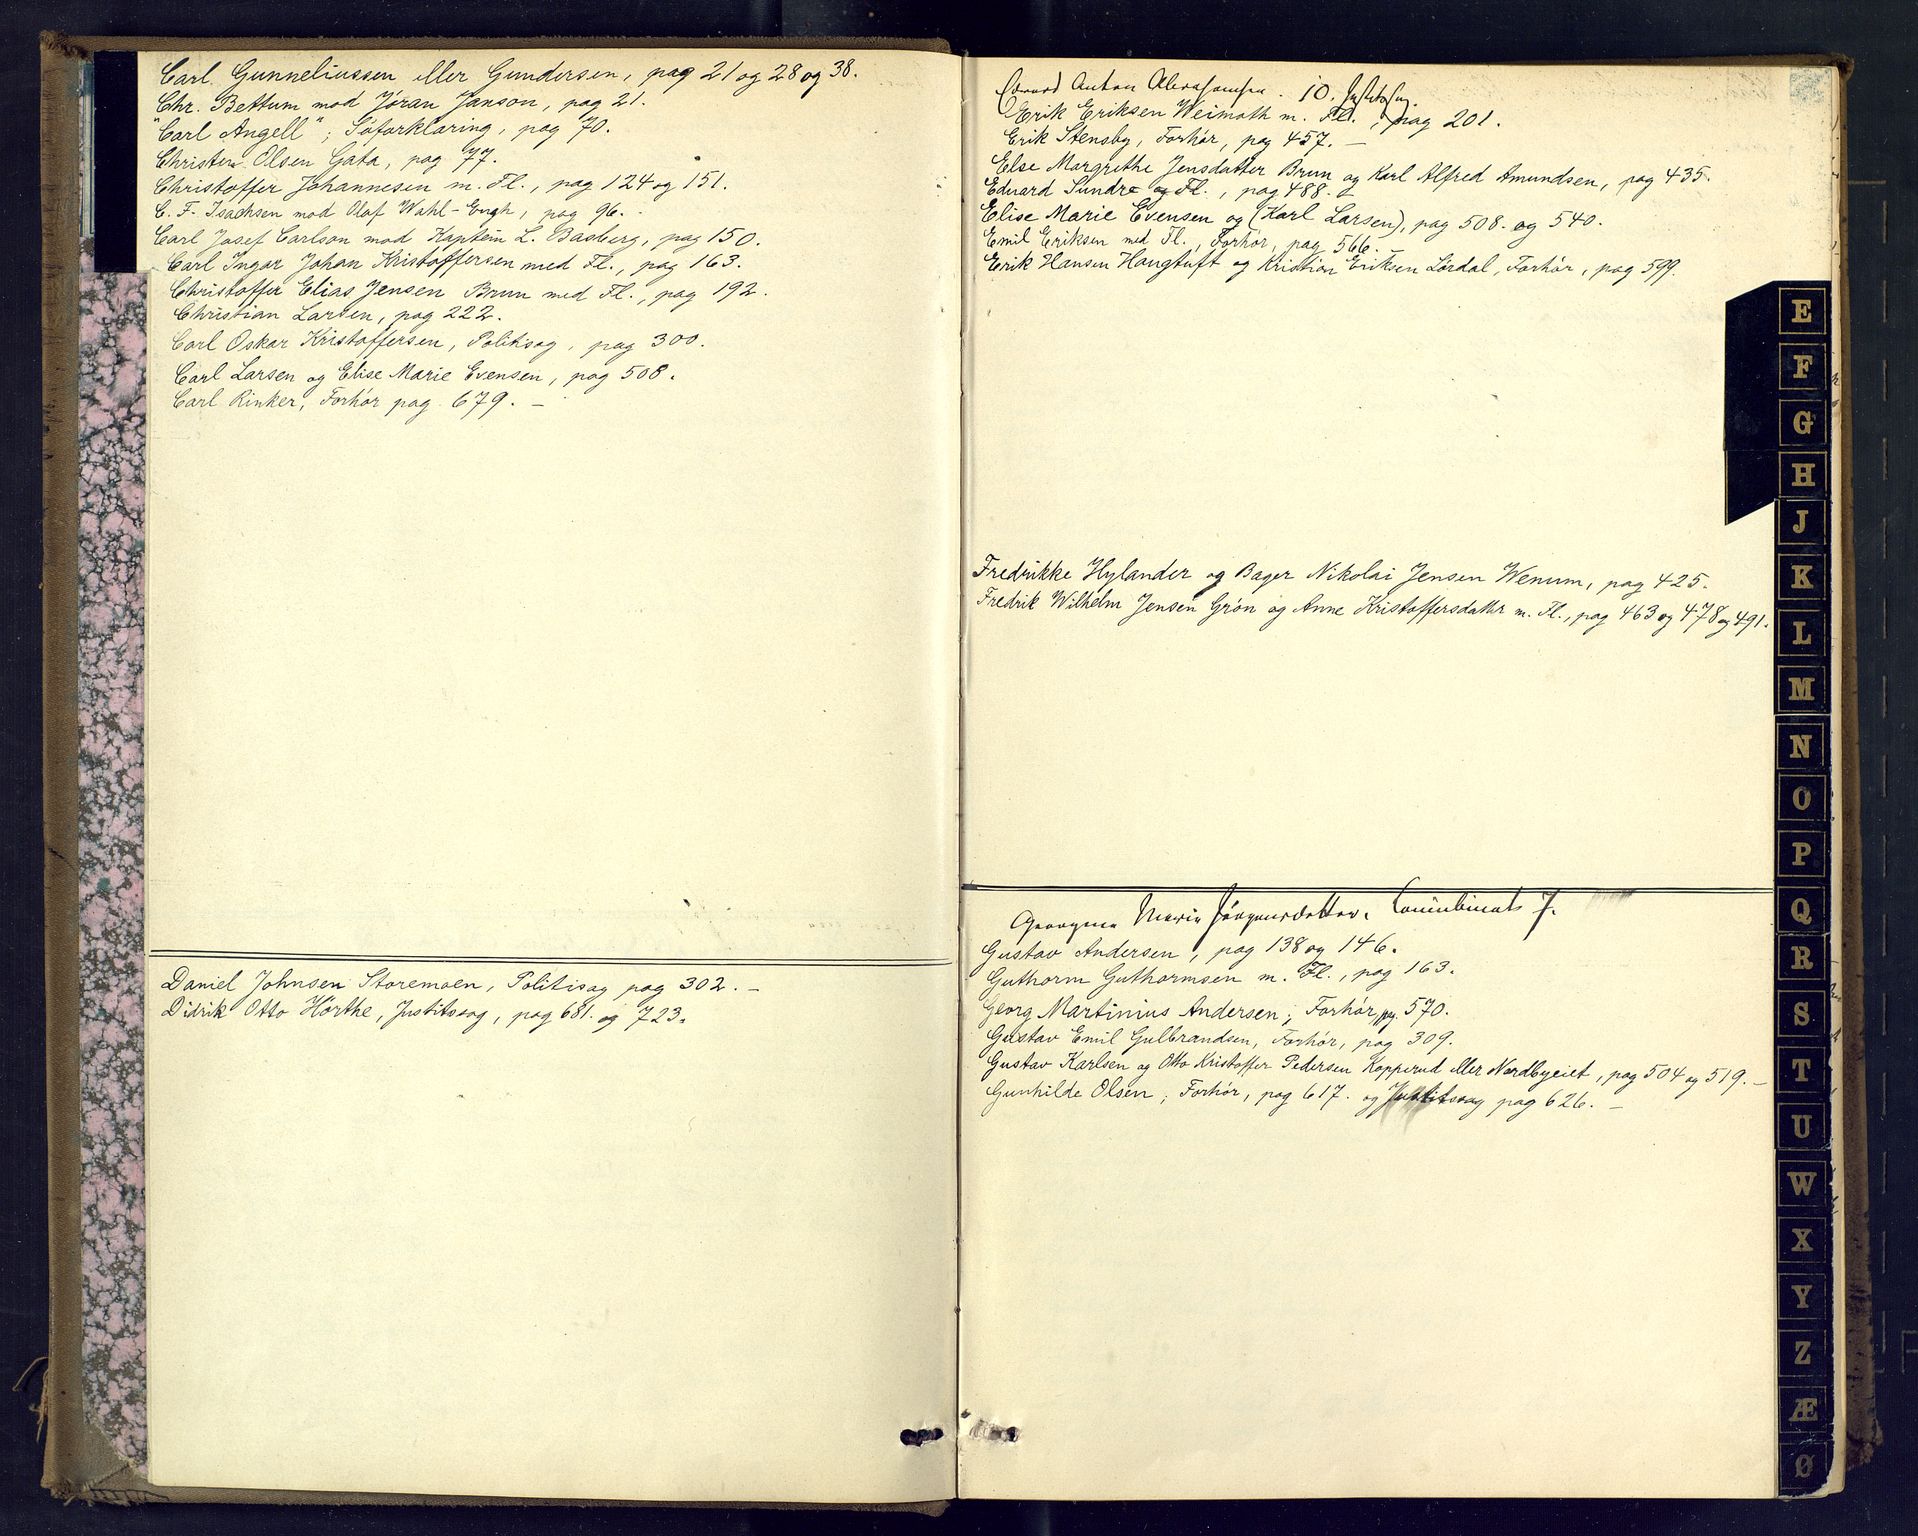 Carl Gunneliussen eller Gundersen, pag 21 og 28 og 38.
Chr. Bettum mod Jöran Janson, pag 21.
"Carl Angell"; Söforklaring, pag 70.
Christen Olsen Gata, pag 77.
Christoffer Johannesen m. Fl., pag 124 og 151.
C. F. Isachsen mod Olaf Wahl-Engh, pag 96.
Carl Josef Carlson mod Kaptein L. Basberg, pag 150.
Carl Ingar Johan Kristoffersen med Fl., pag 163.
Christoffer Elias Jensen Brun med Fl., pag 192.
Christian Larsen, pag 222.
Carl Oskar Kristoffersen, Politisag, pag 300.
Carl Larsen og Elise Marie Evensen, pag 508.
Carl Rinker, Forhör pag. 679. –
Daniel Johnsen Storemoen, Politisag pag 302. –
Didrik Otto Hörthe, Justitssag, pag 681. og 723.
Edvard Anton Abrahamsen. 10. Justitssag.
Erik Eriksen Weimoth m. Fl., pag 201.
Erik Stensby, Forhör, pag 457. –
Else Margrethe Jensdatter Brun og Karl Alfred Amundsen, pag 435.
Eduard Sundre og Fl., pag 488.
Elise Marie Evensen og (Karl Larsen), pag 508. og 540.
Emil Eriksen med Fl., Forhör, pag 566. –
Erik Hansen Haugtuft og Kristian Eriksen Lördal, Forhör, pag 599.
Fredrikke Hylander og Bager Nikolai Jensen Wenum, pag 425.
Fredrik Wilhelm Jensen Grön og Anne Kristoffersdatter m. Fl., pag 463 og 478 og 491.
Georgine Marie Jörgensdatter. 7.
Gustav Andersen, pag 138 og 146.
Guthorm Guthormsen m. Fl., pag 163.
Georg Martinius Andersen; Forhör, pag. 570.
Gustav Emil Gulbrandsen, Forhör, pag 309.
Gustav Karlsen og Otto Kristoffer Pedersen Kopperud eller Nordbyeiet, pag 504 og 519. –
Gunhilde Olsen; Forhör, pag 617. og Justitssag pag 626. –
E
F
G
H
J
K
L
M
N
O
P
Q
R
S
T
U
W
X
Y
Z
Æ
Ø